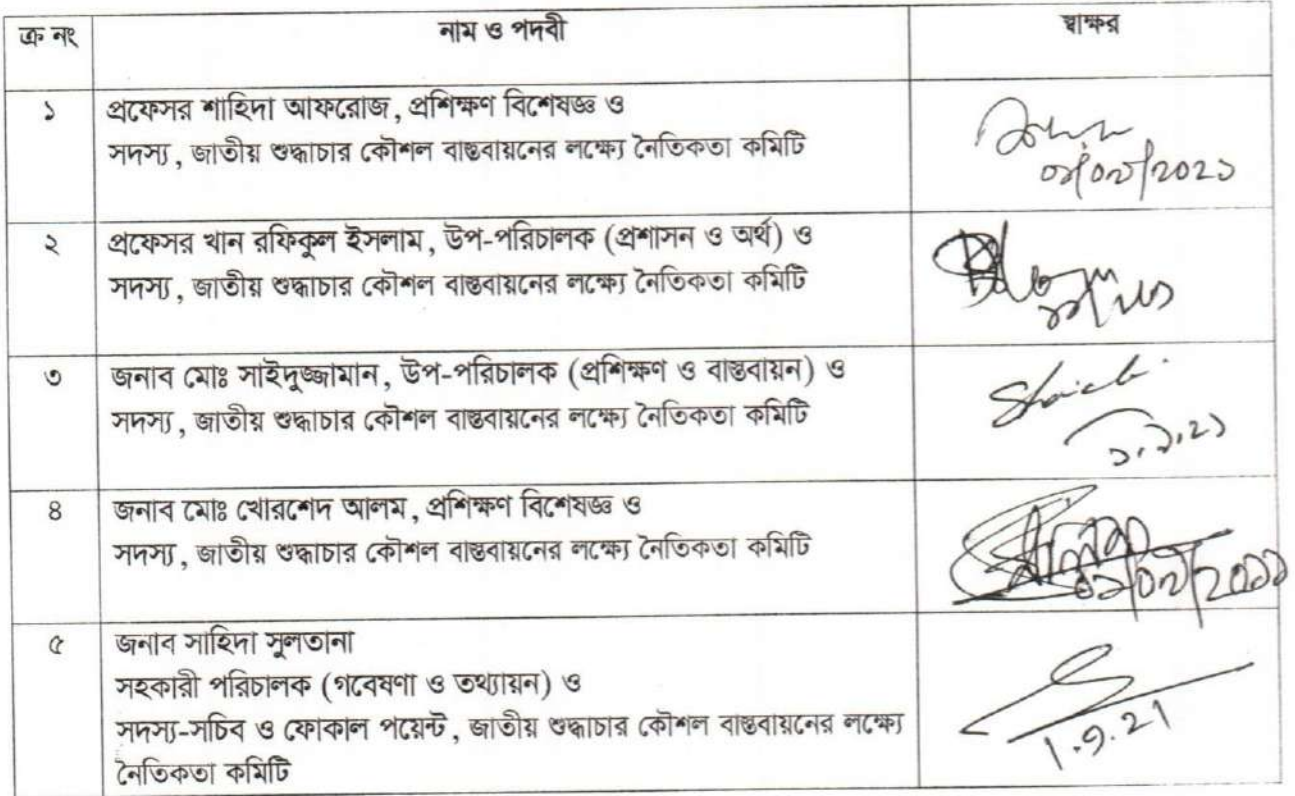 ক্র নং নাম ও পদবী স্বাক্ষর
১ প্রফেসর শাহিদা আফরোজ, প্রশিক্ষণ বিশেষজ্ঞ ও
সদস্য, জাতীয় শুদ্ধাচার কৌশল বাস্তবায়নের লক্ষ্যে নৈতিকতা কমিটি
২ প্রফেসর খান রফিকুল ইসলাম, উপ-পরিচালক (প্রশাসন ও অর্থ) ও
সদস্য, জাতীয় শুদ্ধাচার কৌশল বাস্তবায়নের লক্ষ্যে নৈতিকতা কমিটি
৩ জনাব মোঃ সাইদুজ্জামান, উপ-পরিচালক (প্রশিক্ষণ ও বাস্তবায়ন) ও
সদস্য, জাতীয় শুদ্ধাচার কৌশল বাস্তবায়নের লক্ষ্যে নৈতিকতা কমিটি
৪ জনাব মোঃ খোরশেদ আলম, প্রশিক্ষণ বিশেষজ্ঞ ও
সদস্য, জাতীয় শুদ্ধাচার কৌশল বাস্তবায়নের লক্ষ্যে নৈতিকতা কমিটি
৫ জনাব সাহিদা সুলতানা
সহকারী পরিচালক (গবেষণা ও তথ্যায়ন) ও
সদস্য-সচিব ও ফোকাল পয়েন্ট, জাতীয় শুদ্ধাচার কৌশল বাস্তবায়নের লক্ষ্যে
নৈতিকতা কমিটি
1.9.21